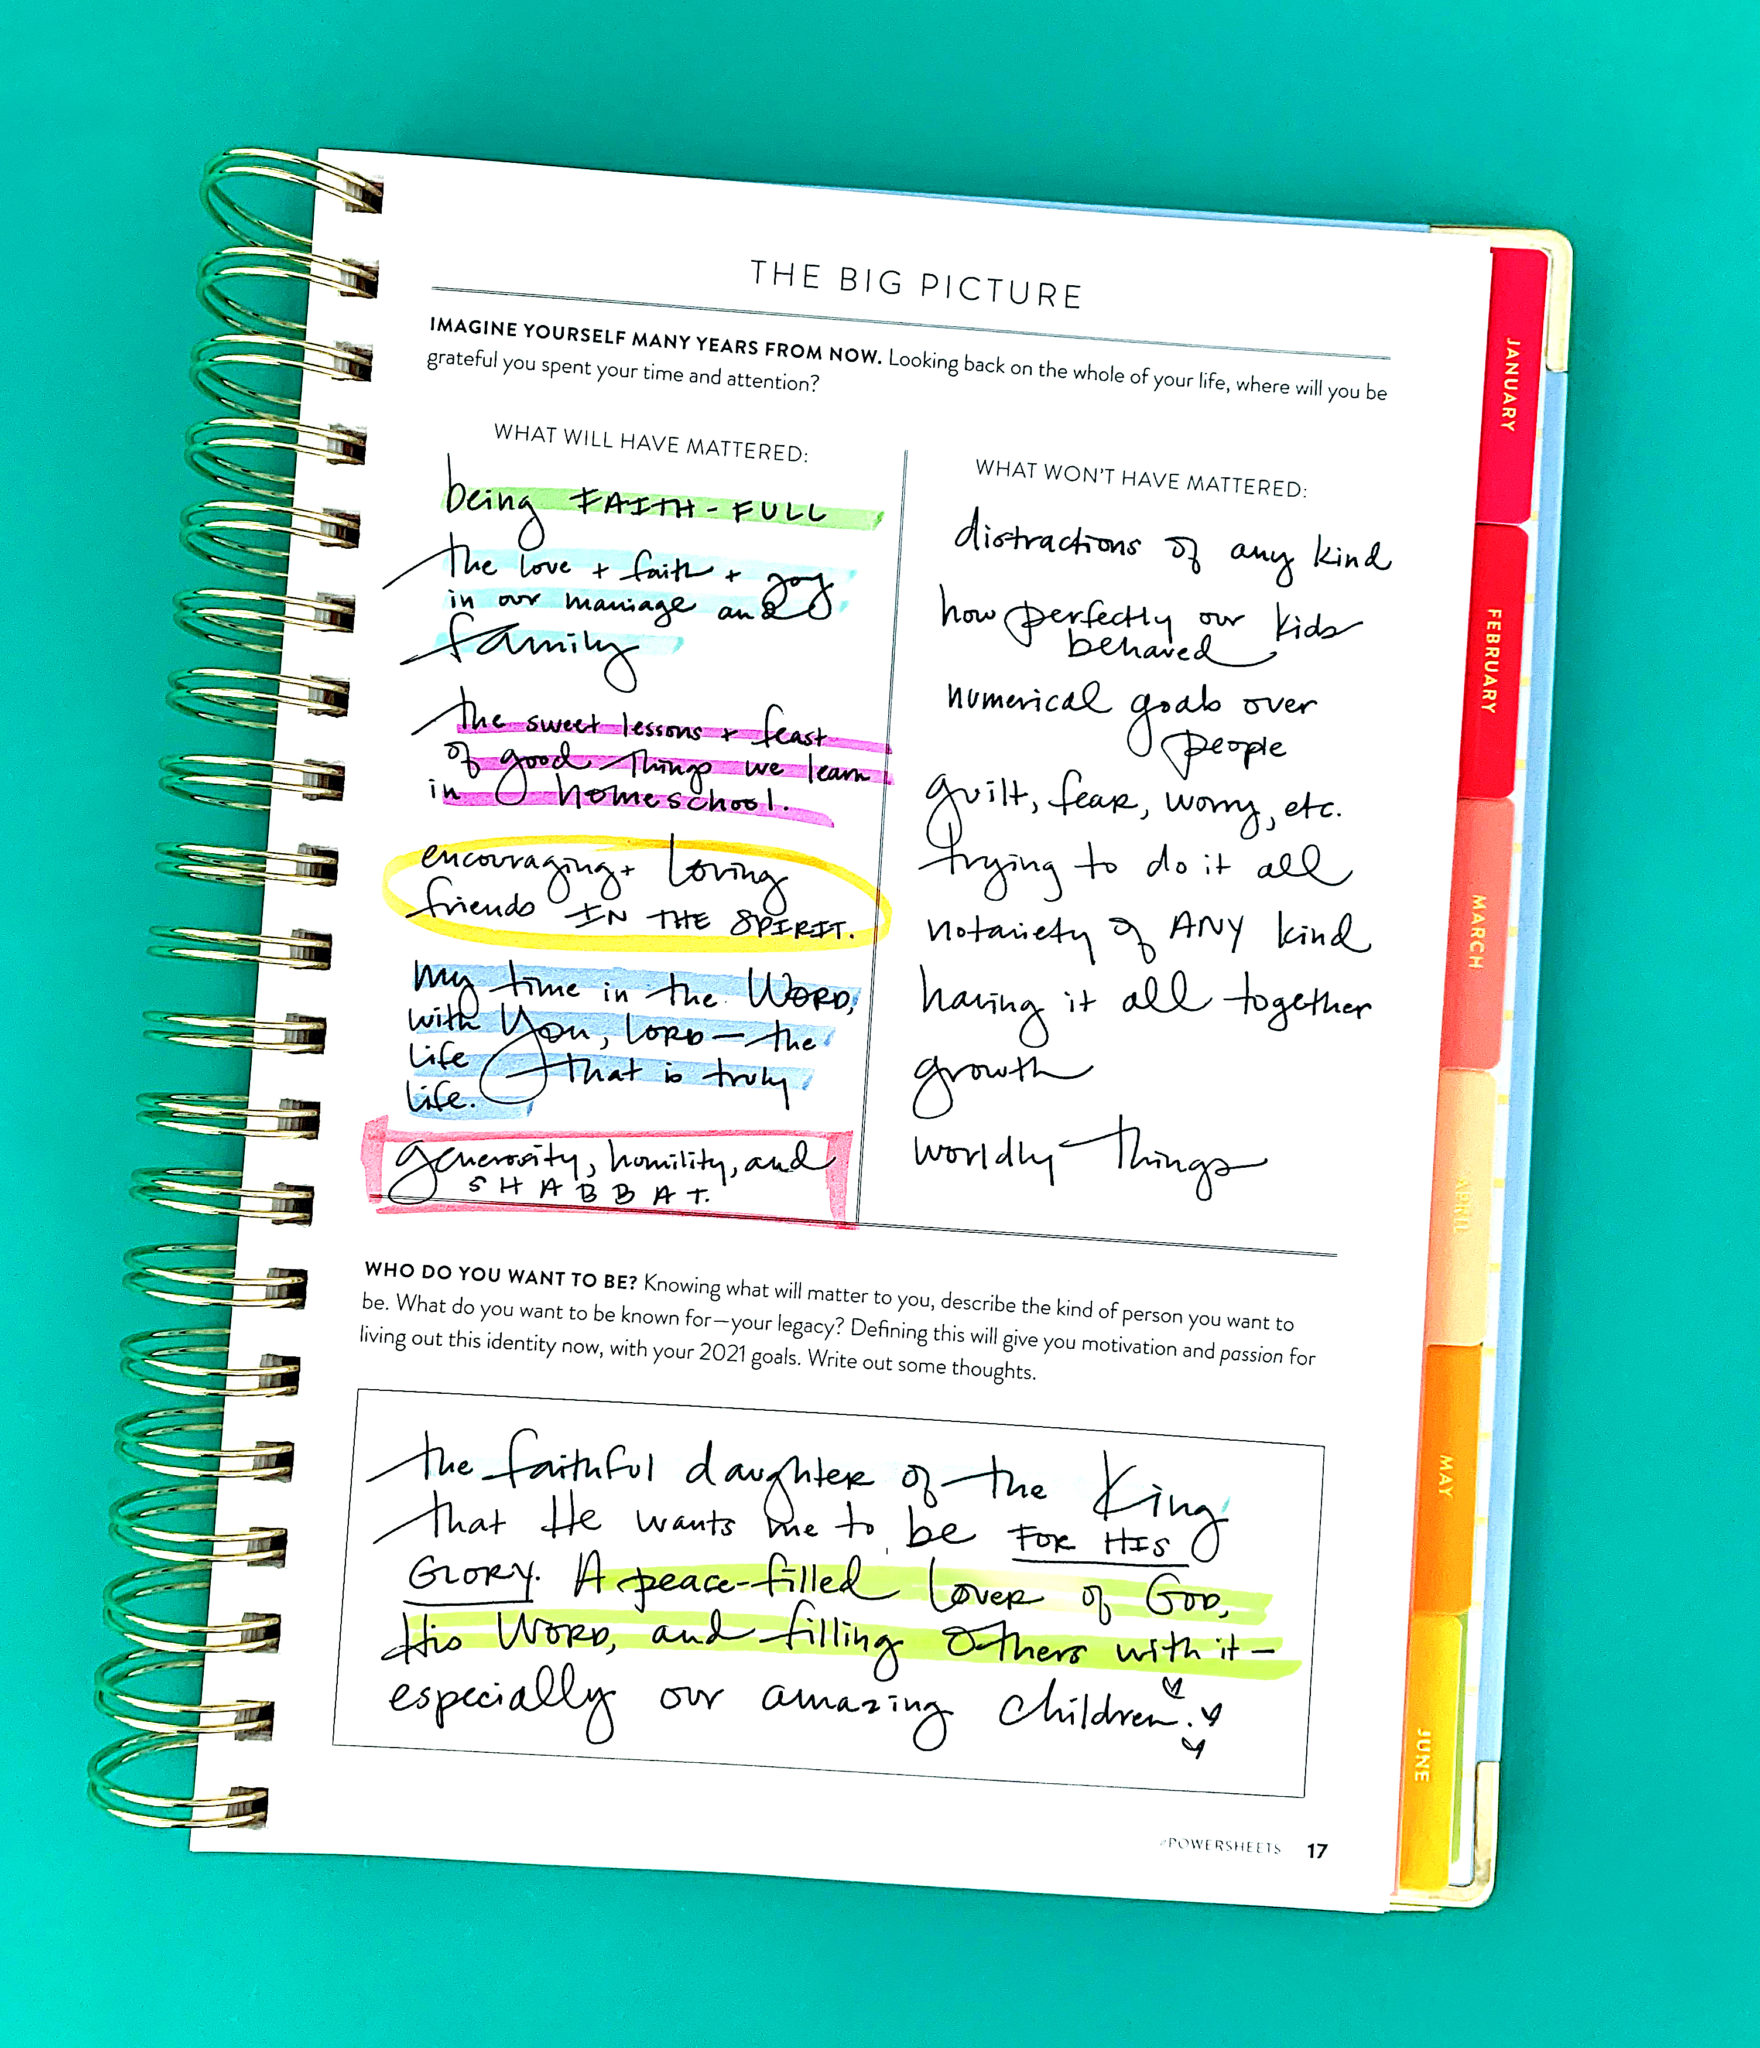 THE BIG PICTURE
IMAGINE YOURSELF MANY YEARS FROM NOW. Looking back on the whole of your life, where will you be
grateful you spent your time and attention?
WHAT WILL HAVE MATTERED:
being FAITH-FULL
the love + faith + joy
in our marriage and
family
the sweet lessons + feast
of good things we learn
in homeschool.
encouraging + loving
friends IN THE SPIRIT.
my time in the WORD,
with You, LORD — the
life that is truly
life.
generosity, humility, and
SHABBAT.
WHAT WON'T HAVE MATTERED:
distractions of any kind
how perfectly our kids
behaved
numerical goals over
people
guilt, fear, worry, etc.
trying to do it all
notariety of ANY kind
having it all together
growth
worldly things
WHO DO YOU WANT TO BE? Knowing what will matter to you, describe the kind of person you want to
be. What do you want to be known for—your legacy? Defining this will give you motivation and passion for
living out this identity now, with your 2021 goals. Write out some thoughts.
the faithful daughter of the King
that He wants me to be FOR HIS
GLORY. A peace-filled lover of GOD,
His WORD, and filling others with it —
especially our amazing children.
#POWERSHEETS 17
JANUARY
FEBRUARY
MARCH
APRIL
MAY
JUNE